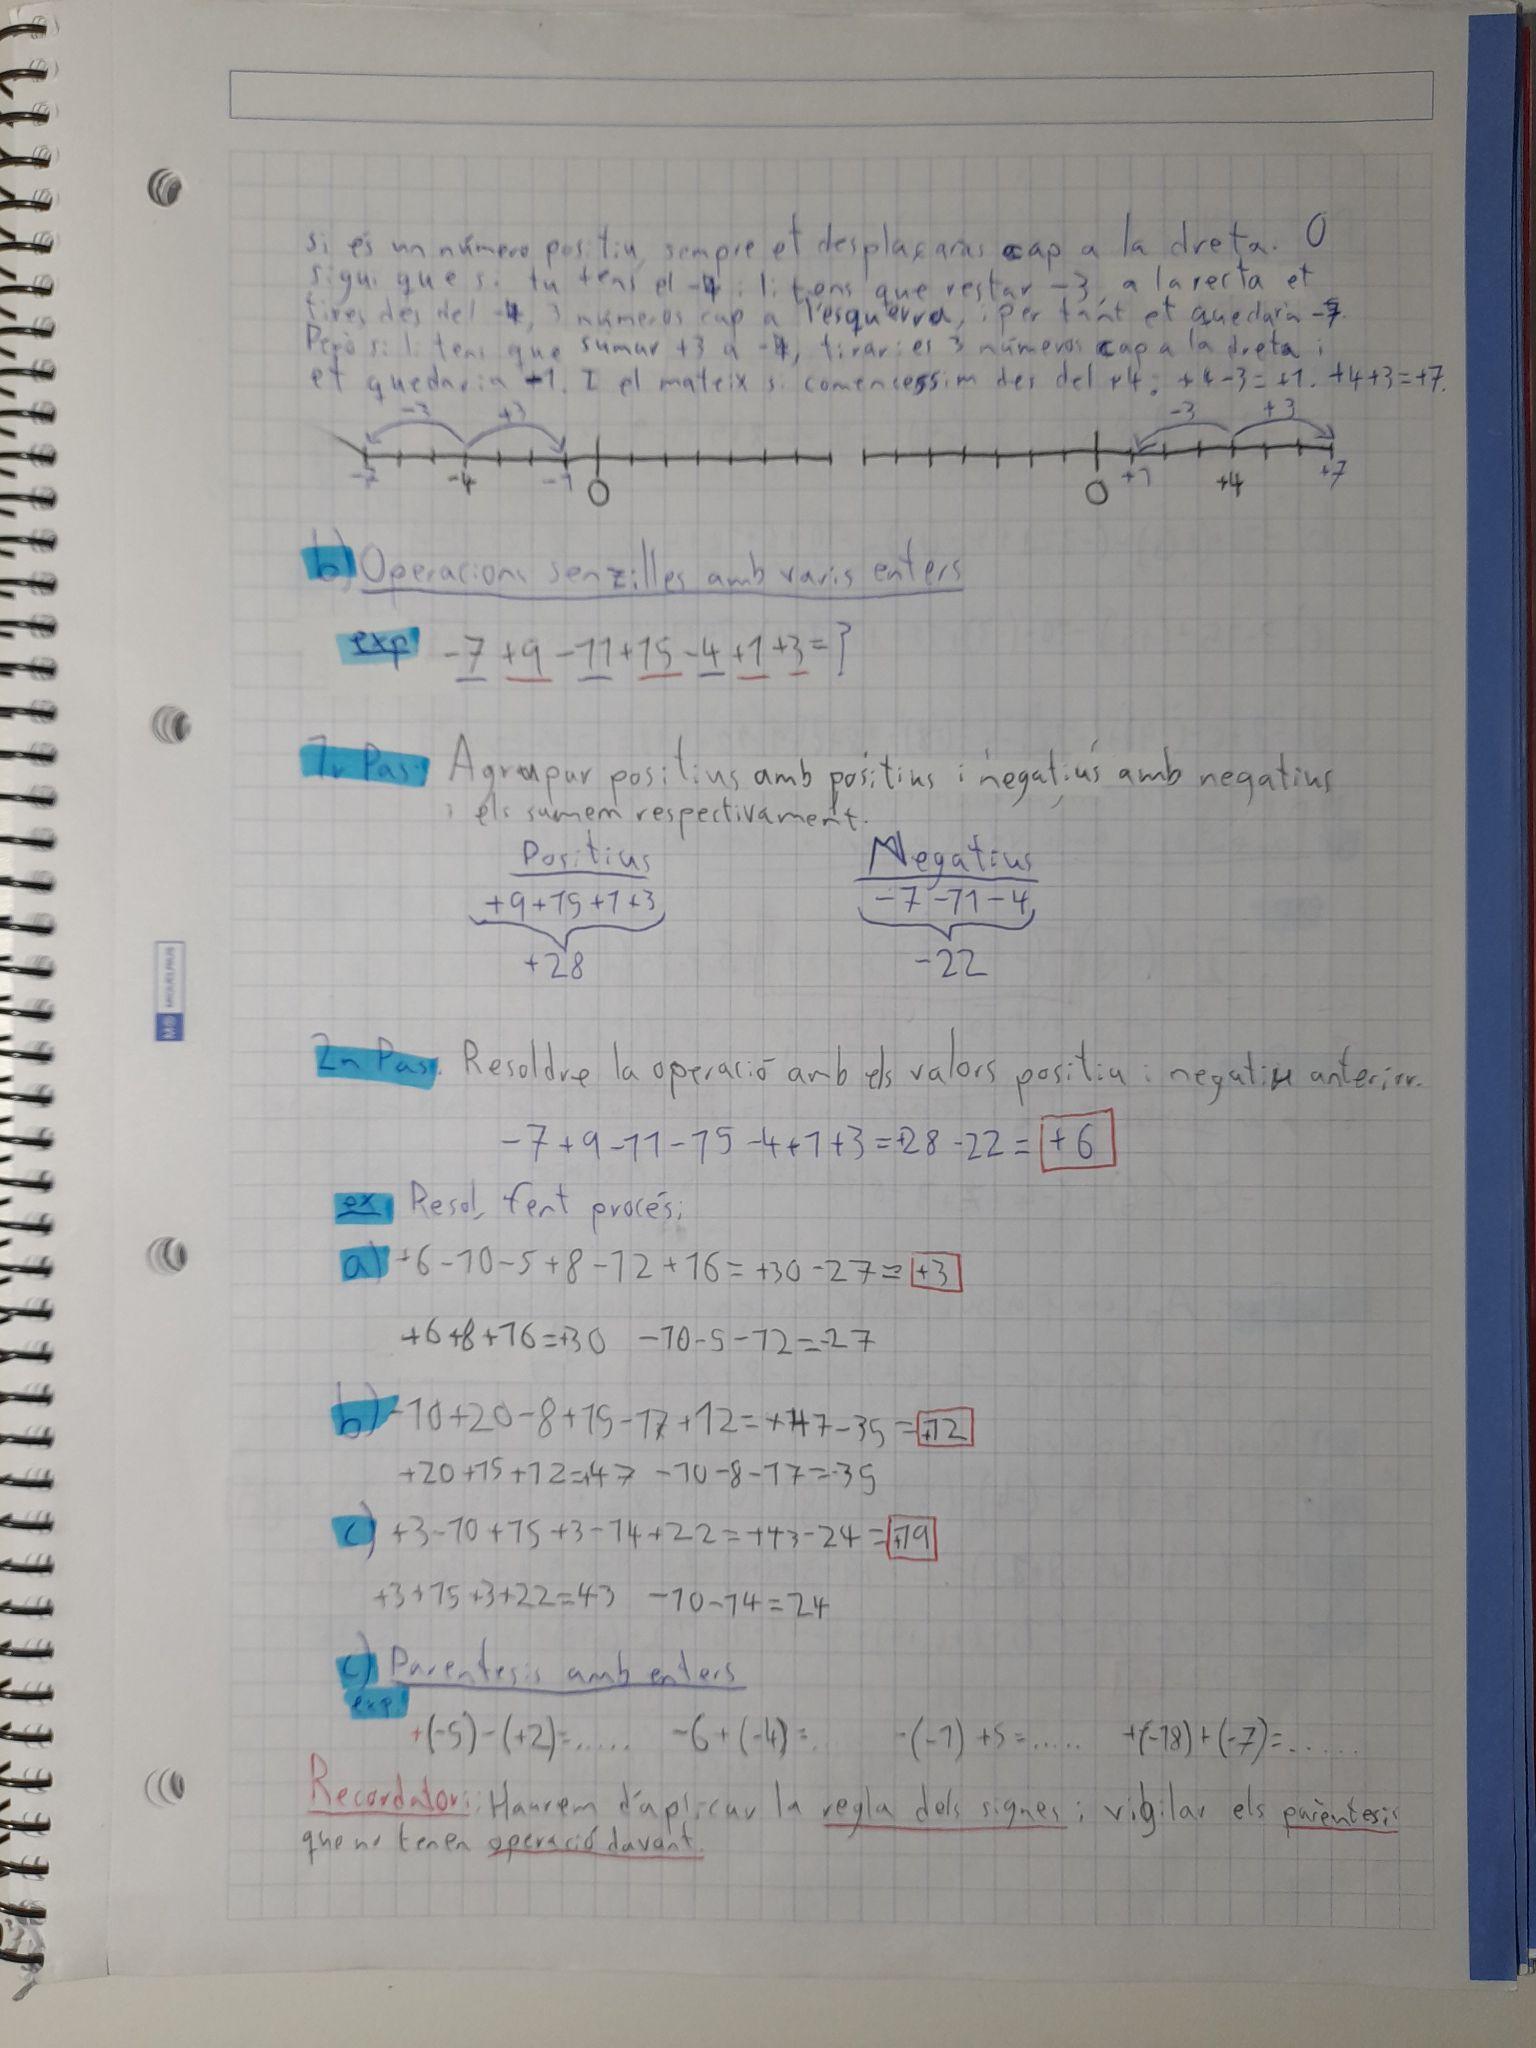 si és un número positiu, sempre et desplaçaras cap a la dreta. O
sigui que si tu tens el -4 i li tens que restar -3, a la recta et
tires des del -4, 3 números cap a l'esquerra, i per tant et quedaria -7.
Però si li tens que sumar +3 a -4, tiraries 3 números cap a la dreta i
et quedaria -1. I el mateix si comencessim des del +4: +4-3=+1. +4+3=+7.
-3 +3 -3 +3
-7 -4 -1 0 0 +1 +4 +7
b) Operacions senzilles amb varis enters
exp -7 +9 -11 +15 -4 +1 +3 = ?
1r Pas: Agrupar positius amb positius i negatius amb negatius
i els sumem respectivament.
Positius Negatius
+9+15+1+3 -7-11-4
+28 -22
2n Pas: Resoldre la operació amb els valors positiu i negatiu anterior.
-7+9-11-15-4+1+3=+28-22=+6
ex Resol, fent procés:
a) +6-10-5+8-12+16=+30-27=+3
+6+8+16=+30 -10-5-12=-27
b) -10+20-8+15-17+12=+47-35=+12
+20+15+12=+47 -10-8-17=-35
c) +3-10+15+3-14+22=+43-24=+19
+3+15+3+22=43 -10-14=24
c) Parentesis amb enters
exp
+(-5)-(+2)=...... -6+(-4)=.. -(-1)+5=...... +(-18)+(-7)=......
Recordatori: Haurem d'aplicar la regla dels signes i vigilar els parèntesis
que no tenen operació davant.
MIQUELRIUS